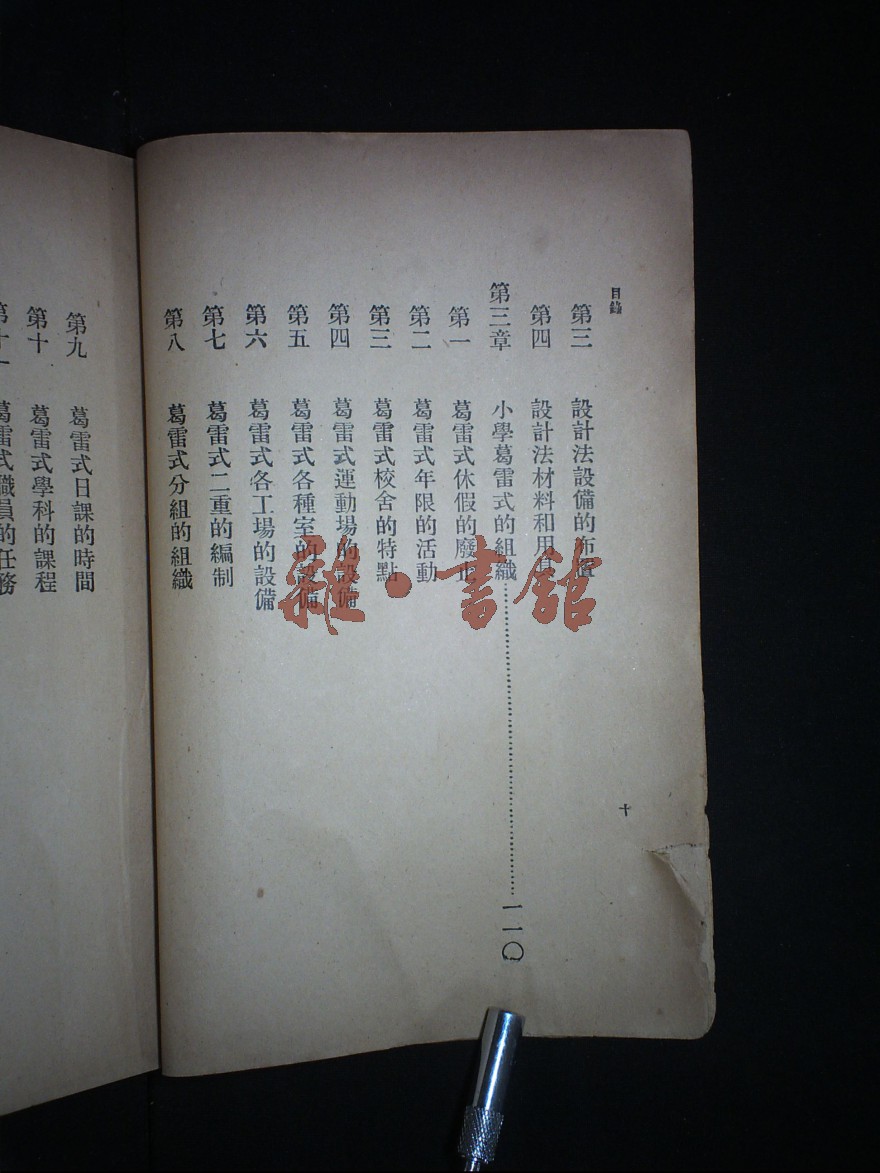 目錄
第三 設計法設備的布置
第四 設計法材料和用具
第三章 小學葛雷式的組織……一一〇
第一 葛雷式休假的廢止
第二 葛雷式年限的活動
第三 葛雷式校舍的特點
第四 葛雷式運動場的設備
第五 葛雷式各種室的設備
第六 葛雷式各工場的設備
第七 葛雷式二重的編制
第八 葛雷式分組的組織
十
第九 葛雷式日課的時間
第十 葛雷式學科的課程
第十一 葛雷式職員的任務
雜·書館